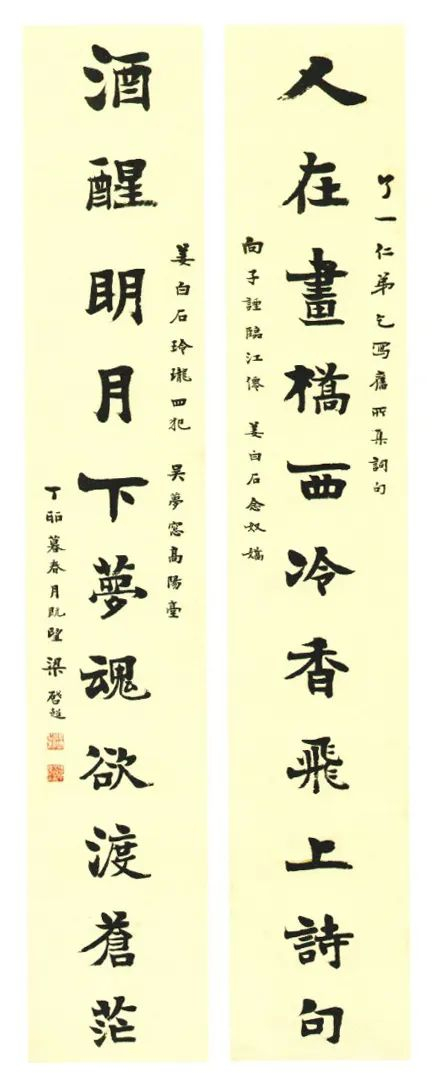 一仁弟乞寫舊所集詞句
人在畫橋西冷香飛上詩句
向子諲臨江僊 姜白石念奴嬌
姜白石玲瓏四犯 吳夢窓高陽臺
酒醒明月下夢魂欲渡蒼茫
丁卯暮春月既望 梁啓超